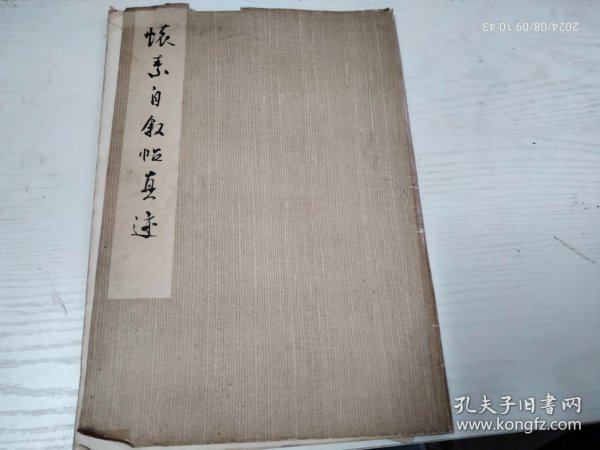 懐素自叙帖真迹
2024/08/09 10:43
孔夫子旧书网
www.kongfz.com